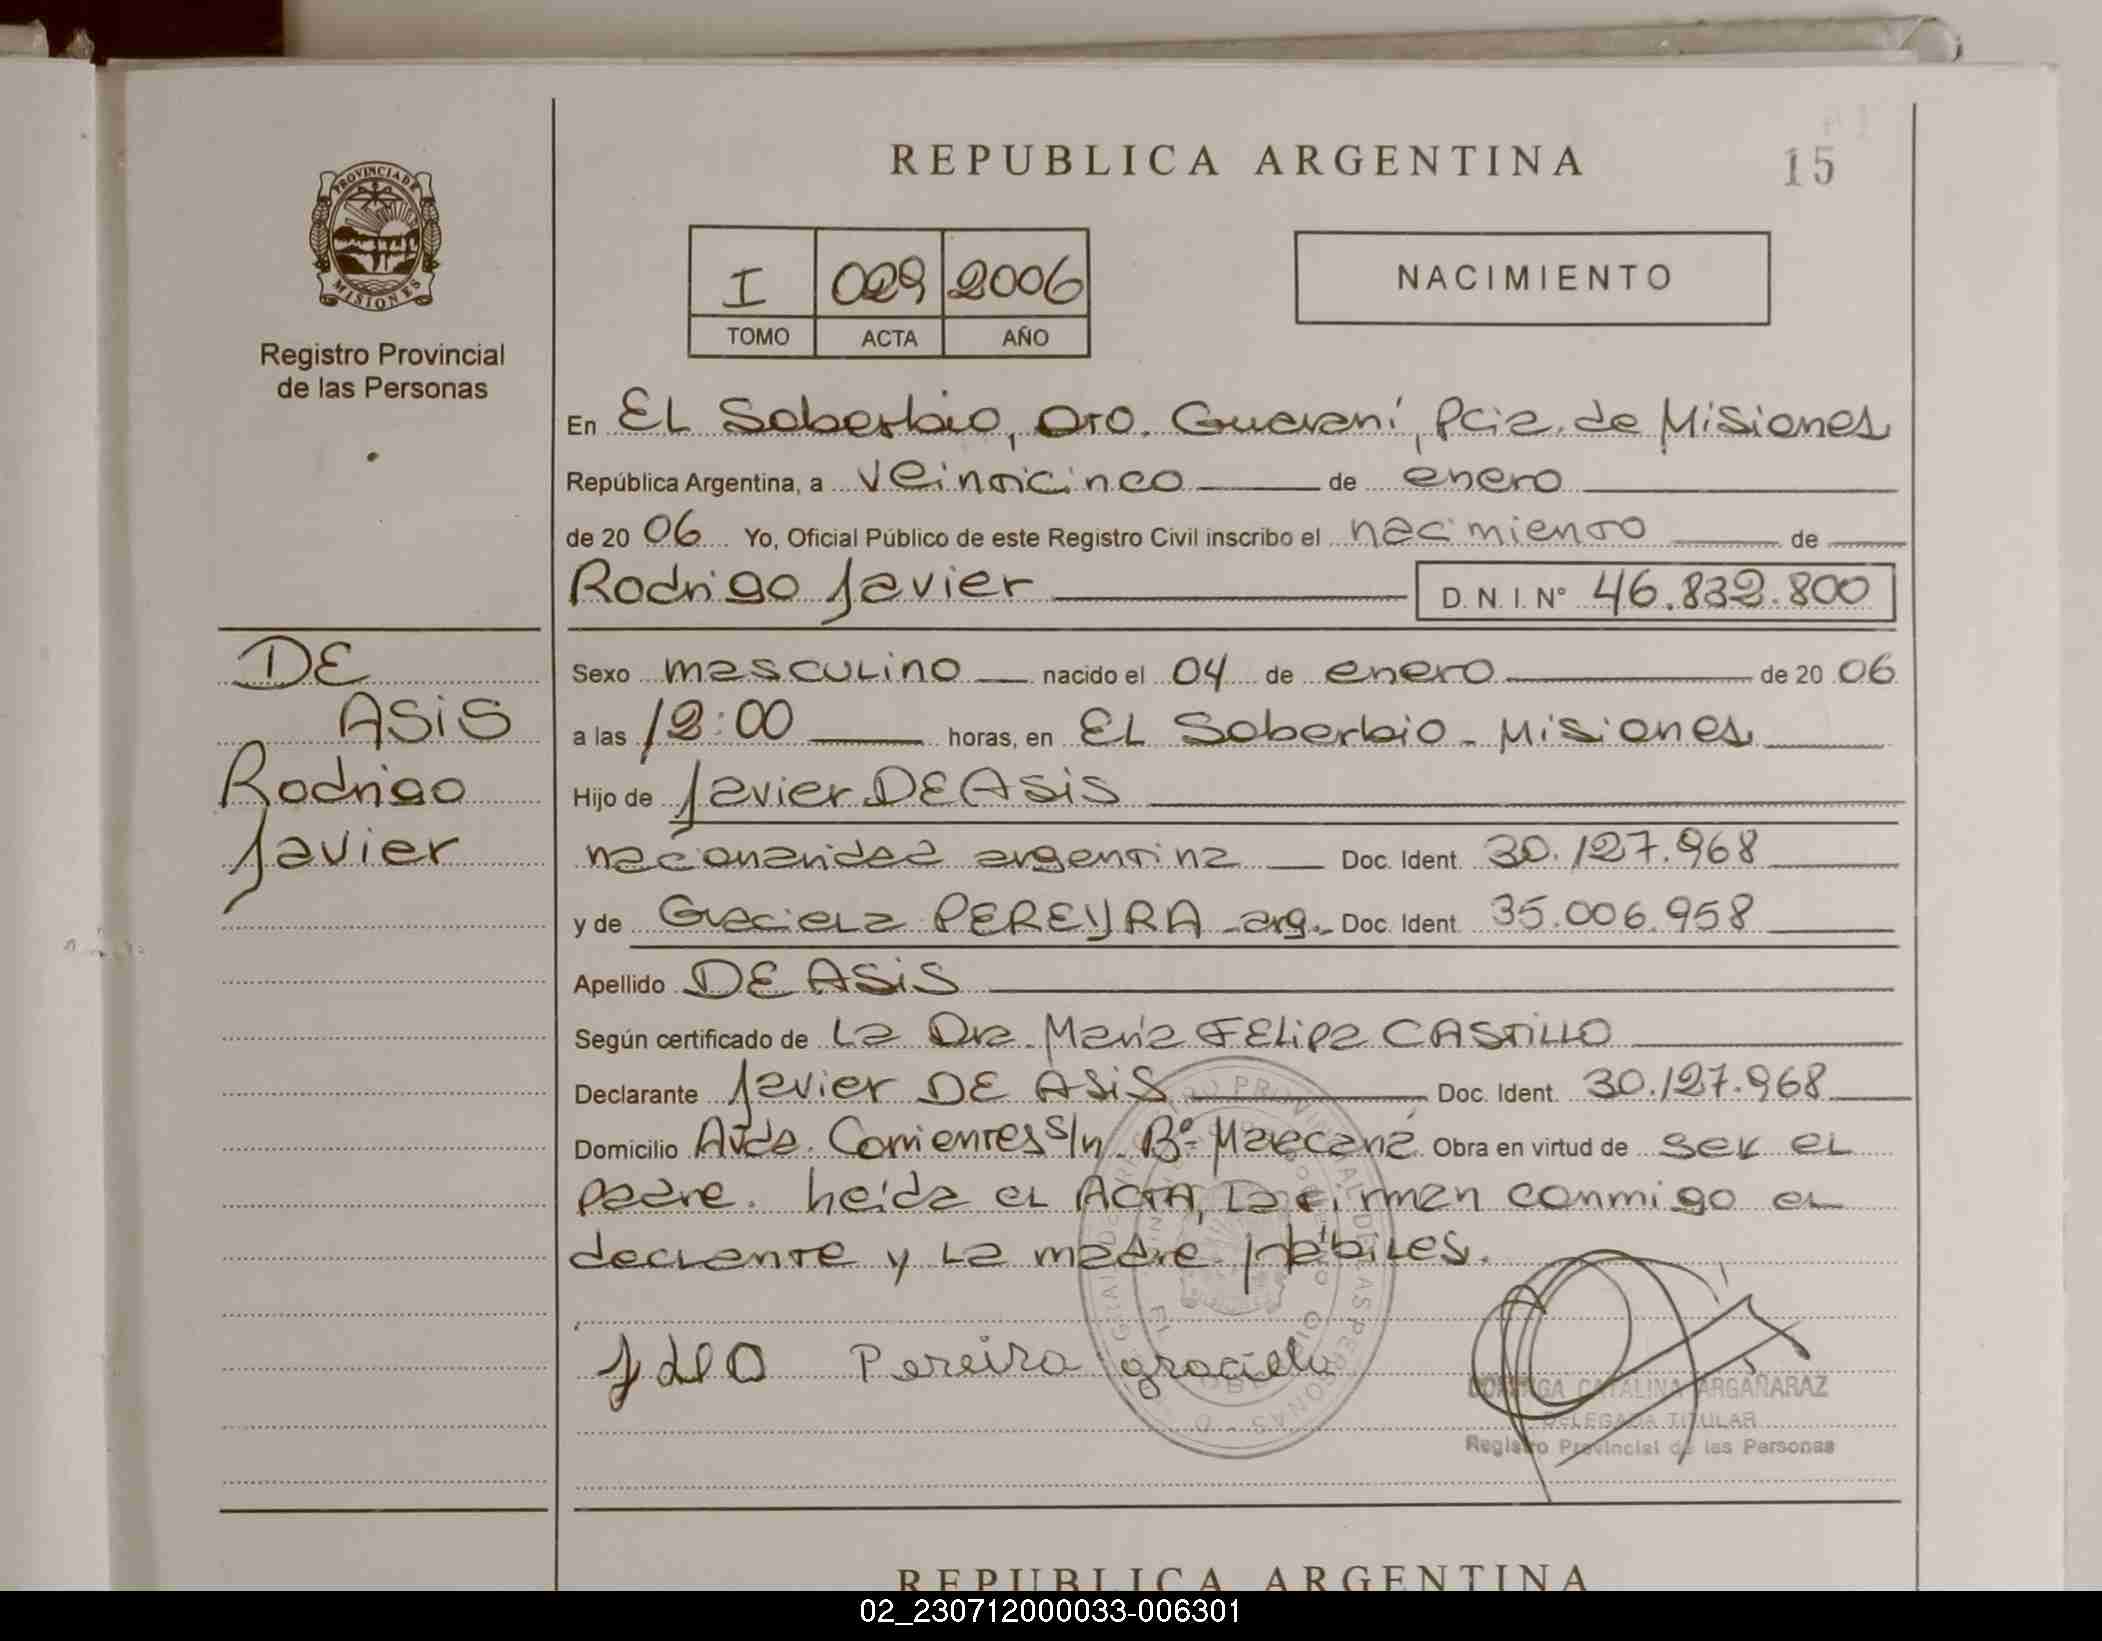 REPUBLICA ARGENTINA
15
PROVINCIA DE
MISIONES
Registro Provincial
de las Personas
I 029 2006
TOMO ACTA AÑO
NACIMIENTO
En EL Soberbio, Dto. Guaraní, Pcia. de Misiones
República Argentina, a veinticinco de enero
de 2006 Yo, Oficial Público de este Registro Civil inscribo el nacimiento de
Rodrigo Javier D.N.I. N° 46.832.800
DE
ASiS
Rodrigo
Javier
Sexo masculino nacido el 04 de enero de 2006
a las 12:00 horas, en EL Soberbio - Misiones
Hijo de Javier DE ASiS
nacionalidad argentina Doc. Ident. 30.127.968
y de Graciela PEREYRA - arg. - Doc. Ident. 35.006.958
Apellido DE ASiS
Según certificado de La Dra. María FELipa CASTILLO
Declarante Javier DE ASiS Doc. Ident. 30.127.968
Domicilio Avda. Corrientes s/n Bº Maracaná Obra en virtud de ser el
padre. Leida el ACTA, La firman conmigo el
declante y La madre hábiles.
Pereira graciela
DOMINGA CATALINA ARGAÑARAZ
DELEGADA TITULAR
Registro Provincial de las Personas
REPUBLICA ARGENTINA
02_230712000033-006301